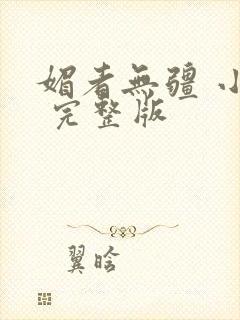 媚者無疆 小
完整版
翼晗